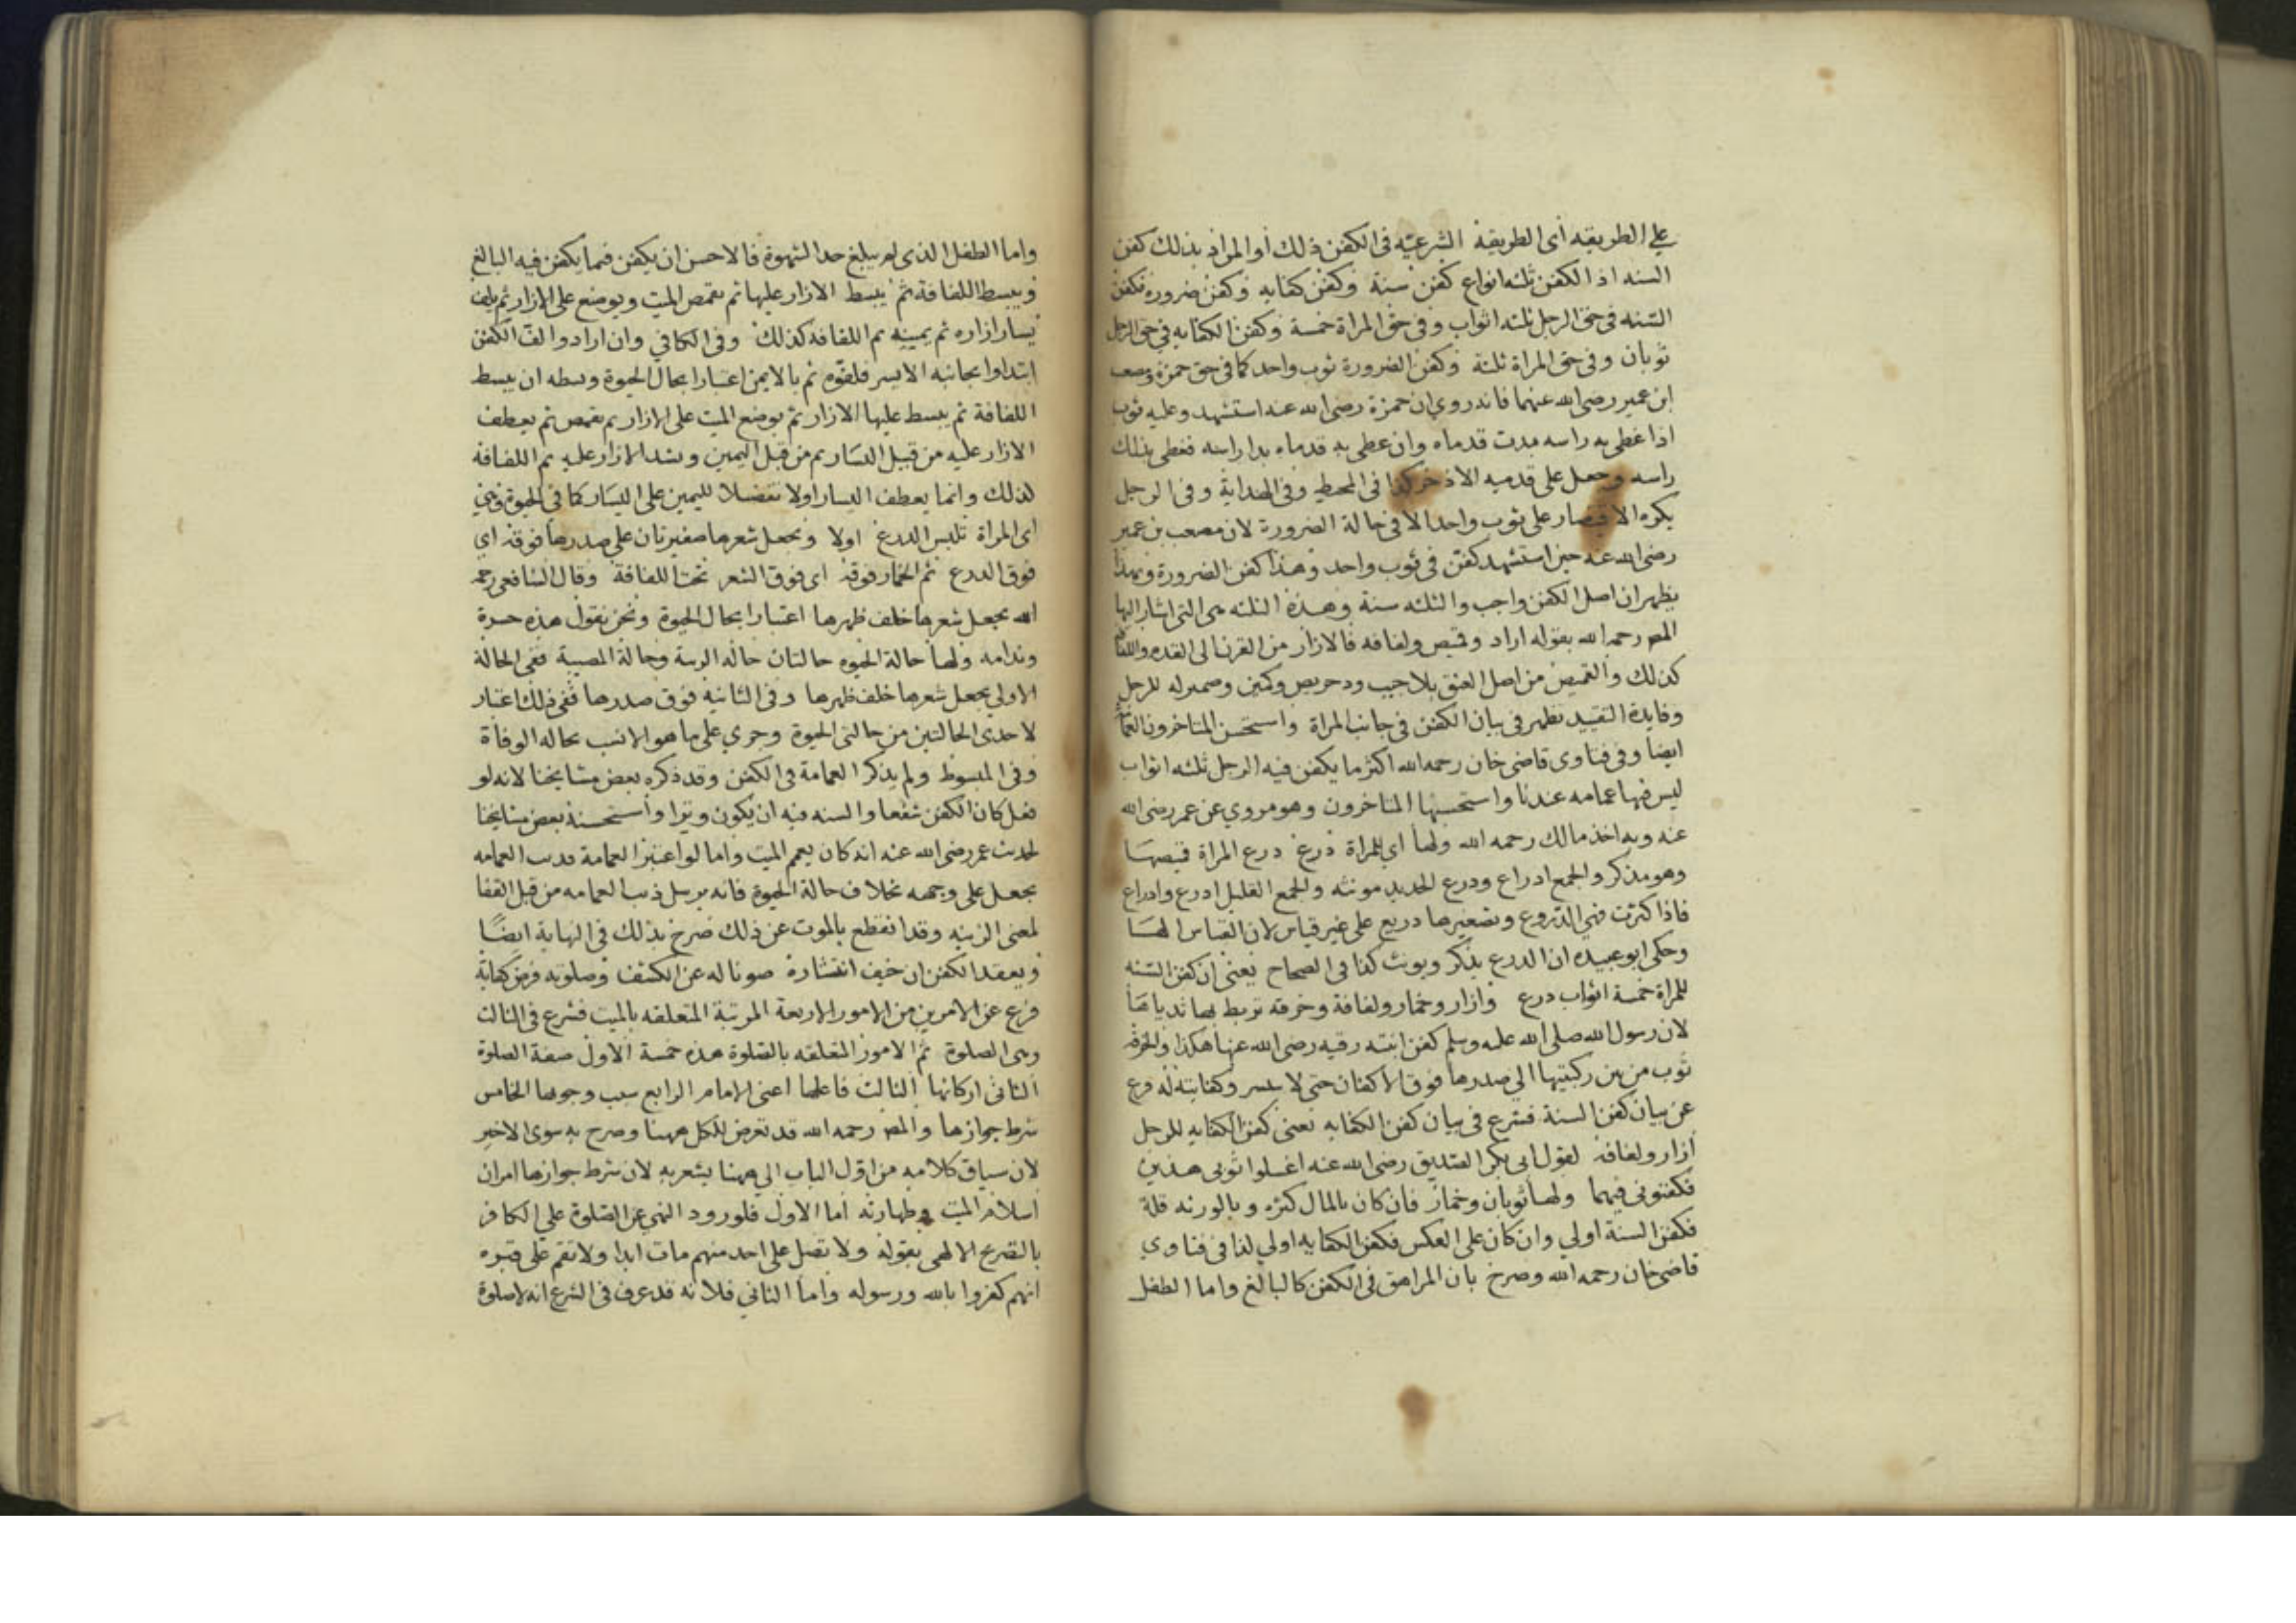 علي الطريقه أى الطريقة الشرعيّه فى الكفن ذلك أو المراد بذلك كفن
السنه اذ الكفن ثلثه انواع كفن سنة وكفن كفايه وكفن ضرورة فكفن
السّنه فى حق الرجل ثلثه اثواب وفى حق المراة خمسة وكفن الكفايه فى حق الرجل
ثوبان وفى حق المراة ثلثة وكفن الضرورة ثوب واحد كما فى حق حمزة ومصعب
ابن عمير رضى الله عنهما فانه روي ان حمزة رضى الله عنه استشهد وعليه ثوب
اذا غطى به راسه بدت قدماه وان غطى به قدماه بدا راسه فغطى بذلك
راسه وجعل على قدميه الاذخر كذا فى المحيط وفى الهداية وفى الرجل
يكره الاقتصار على ثوب واحد الا فى حالة الضرورة لان مصعب بن عمير
رضى الله عنه حين استشهد كفن فى ثوب واحد وهذا كفن الضرورة وبهذا
يظهر ان اصل الكفن واجب والثلثه سنة وهذه الثلثه هى التى اشار اليها
المص رحمه الله بقوله ازار وقميص ولفافه فالازار من القرن الى القدم واللفافة
كذلك والقميص من اصل العنق بلا جيب ودخريص وكمين وضميرله للرجل
وفايدة التقييد تظهر فى بيان الكفن فى جانب المراة واستحسن المتاخرون العمامة
ايضا وفى فتاوى قاضى خان رحمه الله اكثر ما يكفن فيه الرجل ثلثه اثواب
ليس فيها عمامه عندنا واستحسنها المتاخرون وهو مروي عن عمر رضى الله
عنه وبه اخذ مالك رحمه الله ولها اى للمراة درع درع المراة قميصها
وهو مذكر والجمع ادراع ودرع الحديد مونثه والجمع القليل ادرع وادراع
فاذا كثرت فهى الدّروع وتصغيرها دريع على غير قياس لان القياس الها
وحكى ابو عبيده ان الدرع يذكر ويونث كذا فى الصحاح يعنى ان كفن السّنه
للمراة خمسة اثواب درع وازار وخمار ولفافة وخرقه تربط بها ثدياها
لان رسول الله صلى الله عليه وسلم كفن ابنته رقيه رضى الله عنها هكذا والخرقة
ثوب من بين ركبتيها الى صدرها فوق الاكفان حتى لا ينتشر وكفايته له فرغ
عن بيان كفن السنة فشرع فى بيان كفن الكفايه يعنى كفن الكفايه للرجل
ازار ولفافة لقول ابى بكر الصّديق رضى الله عنه اغسلوا ثوبى هذين
فكفنونى فيهما ولها ثوبان وخمار فان كان بالمال كثره وبالورثه قلة
فكفن السنة اولي وان كان على العكس فكفن الكفايه اولي لذا فى فتاوي
قاضى خان رحمه الله وصرح بان المراهق فى الكفن كالبالغ واما الطفل
واما الطفل الذى لم يبلغ حد الشهوة فالاحسن ان يكفن فيما يكفن فيه البالغ
ويبسط اللفافة ثم يبسط الازار عليها ثم يقمص الميت ويوضع على الازار ثم يلف
يسار ازاره ثم يمينه ثم اللفافه كذلك وفى الكافي وان ارادوا لفّ الكفن
ابتداوا بجانبه الايسر فلفوه ثم بالايمن اعتبارا بحال الحيوة وبسطه ان يبسط
اللفافة ثم يبسط عليها الازار ثم يوضع الميت على الازار ثم يقمص ثم يعطف
الازار عليه من قبل اليسار ثم من قبل اليمين ويشد الازار عليه ثم اللفافة
كذلك وانما يعطف اليسار اولا تفضيلا لليمين على اليسار كما فى الحيوة وهى
اى المراة تلبس الدرع اولا ويجعل شعرها ضفيرتان على صدرها فوقه اى
فوق الدرع ثم الخمار فوقه اى فوق الشعر تحت اللفافة وقال الشافعى رحمه
الله يجعل شعرها خلف ظهرها اعتبارا بحال الحيوة ونحن نقول هذه حسرة
وندامه ولها حالة الحيوه حالتان حالة الزينة وحالة المصيبة ففى الحالة
الاولي يجعل شعرها خلف ظهرها وفى الثانية فوق صدرها ففى ذلك اعتبار
لاحدى الحالتين من حالتى الحيوة وجري على ما هو الانسب بحاله الوفاة
وفى المبسوط ولم يذكر العمامة فى الكفن وقد ذكره بعض مشايخنا لانه لو
فعل كان الكفن شفعا والسنه فيه ان يكون وترا واستحسنه بعض مشايخنا
لحديث عمر رضى الله عنه انه كان يعمم الميت واما لو اعتبر العمامة فذنب العمامه
يجعل على وجهه بخلاف حالة الحيوة فانه يرسل ذنب العمامه من قبل القفا
لمعنى الزينه وقد انقطع بالموت عن ذلك صرح بذلك فى النهاية ايضًا
ويعقد الكفن ان خيف انتشاره صونا له عن الكشف وصلوته فرض كفاية
فرغ عن الامرين من الامور الاربعة المرتبة المتعلقه بالميت فشرع فى الثالث
وهى الصلوة ثم الامور المتعلقه بالصّلوة هذه خمسة الاول صفة الصلوة
الثانى اركانها الثالث فاعلها اعنى الامام الرابع سبب وجوبها الخامس
شرط جوازها والمص رحمه الله قد تعرض للكل ههنا وصرح به سوى الاخير
لان سياق كلامه من اول الباب الى ههنا يشعر به لان شرط جوازها امران
اسلام الميت وطهارته اما الاول فلورود النهى عن الصّلوة على الكافر
بالتصريح الالهى بقوله ولا تصل على احد منهم مات ابدا ولا تقم على قبره
انهم كفروا بالله ورسوله واما الثانى فلانه قد عرف فى الشرع انه لا صلوة